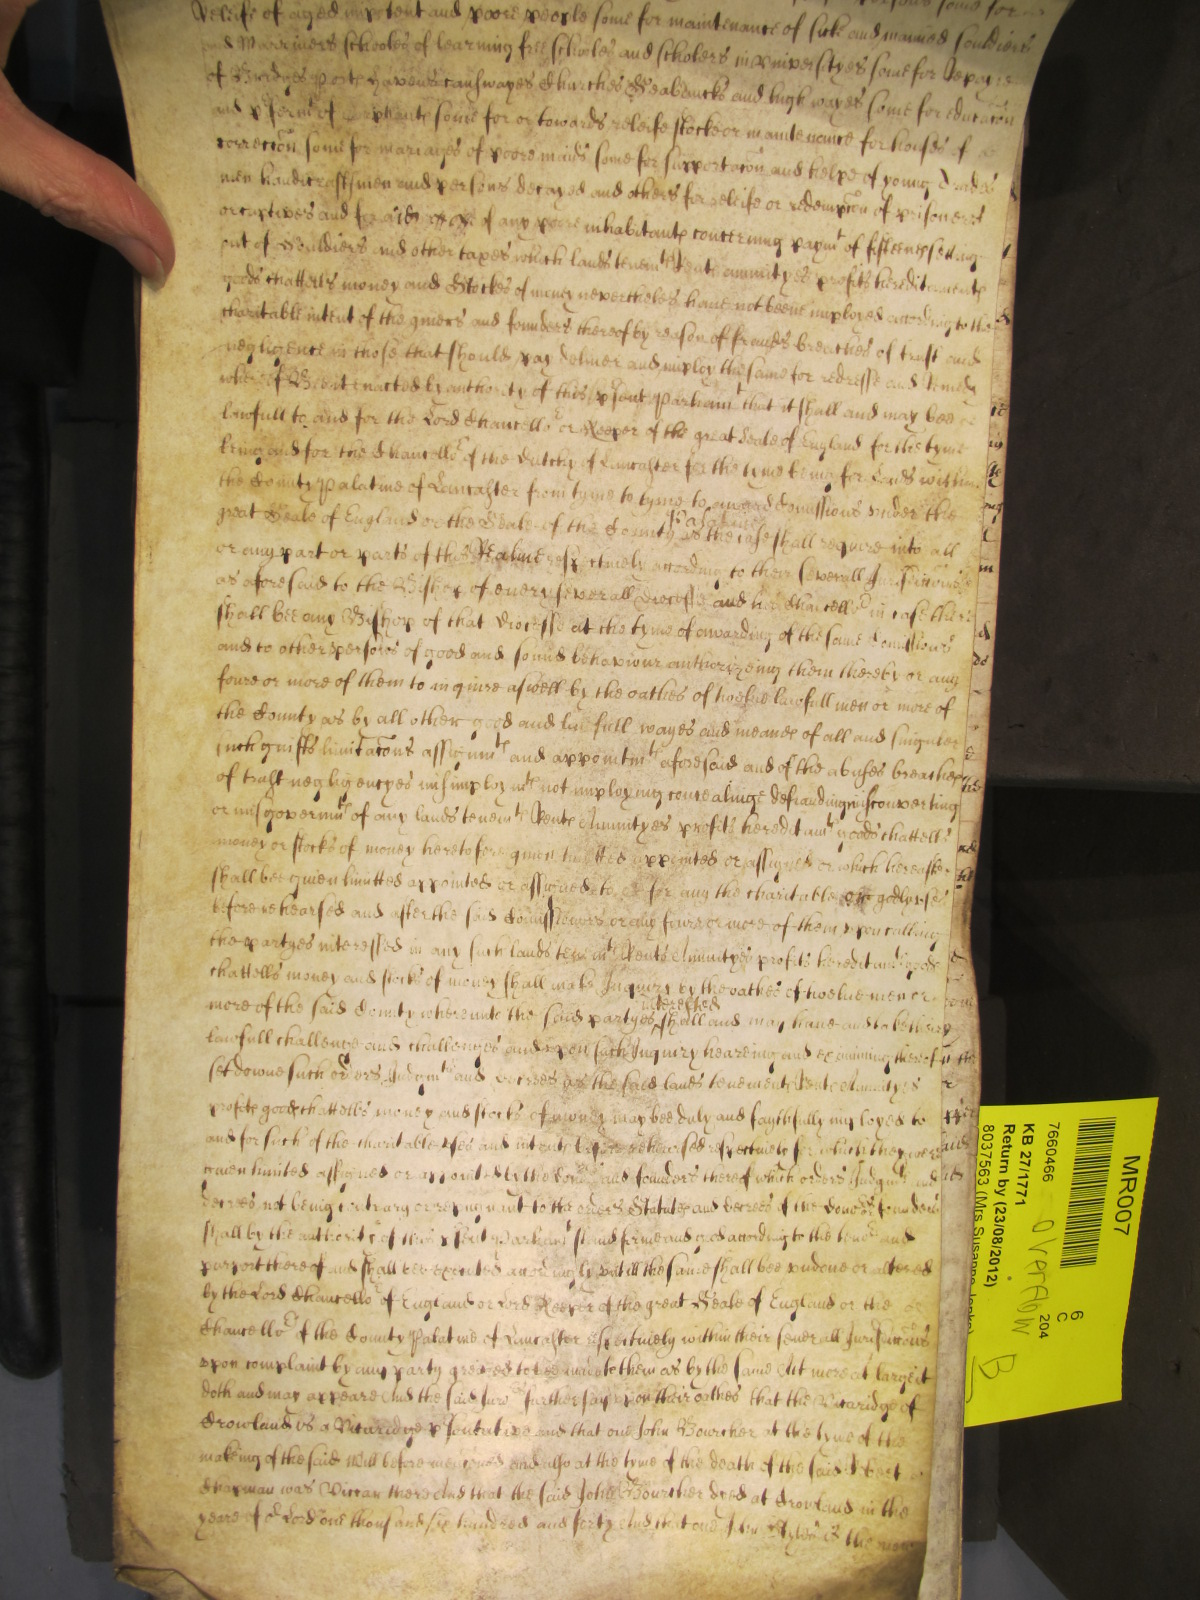 Releife of aged impotent and poore people some for maintenance of sicke and maimed souldiers
and Marriners schooles of learning free schooles and schollers in vniversityes some for Repaire
of Bridges ports havens causwayes Churches Seabancks and high wayes some for educacon
and pferm^t of Orphants some for or towards releife stocke or maintenance for houses of
correccon some for mariages of poore maids some for supportacon and helpe of young Trades
men handicraftsmen and persons decayed and others for releife or redempcon of prisoners
or captives and for aide or ease of any poore inhabitants concerning paym^t of fifteenes setting
out of Souldiers and other taxes which lands tenem^ts Rents annuityes profitts hereditaments
goods chattells money and Stockes of money nevertheles haue not beene imployed according to the
charitable intent of the giuers and founders thereof by reason of frauds breaches of trust and
negligence in those that should pay deliuer and imploy the same for redresse and remedy
whereof Bee it enacted by authority of this psent Parliam^t that it shall and may bee
lawfull to and for the Lord Chancello^r or Keeper of the great Seale of England for the tyme
being and for the Chancello^r of the Dutchy of Lancaster for the tyme being for Lands within
the County Palatine of Lancaster from tyme to tyme to award Comissions vnder the
great Seale of England or the Seale of the County Palatine as the case shall require into all
or any part or parts of this Realme respectiuely according to their severall Jurisdiccons
as aforesaid to the Bishop of euery severall Diocesse and his Chancello^r in case there
shall bee any Bishop of that Diocesse at the tyme of awarding of the same Comissions
and to other persons of good and sound behaviour authorizeing them thereby or any
foure or more of them to inquire aswell by the oathes of twelue lawfull men or more of
the County as by all other good and lawfull wayes and meanes of all and singuler
such guifts limitacons assignm^ts and appointm^ts aforesaid and of the abuses breaches
of trust negligencyes misimploym^ts not imploying concealinge defrauding misconverting
or misgovernm^t of any lands tenem^ts Rents Annuityes profitts hereditam^ts goods chattells
money or stocks of money heretofore giuen limitted appointed or assigned or which hereafter
shall bee giuen limitted appointed or assigned to or for any the charitable and godly vses
before rehearsed and after the said Comissioners or any foure or more of them vpon calling
the partyes interessed in any such lands tenem^ts Rents Annuityes profitts hereditam^ts goods
chattells money and stocks of money shall make Inquiry by the oathes of twelue men or
more of the said County whereunto the said partyes interessed shall and may haue and take their
lawfull challenge and challenges and vpon such Inquiry heareing and examining thereof
set downe such orders Judgm^ts and decrees as the said lands tenements Rents Annuityes
profitts goods chattells money and stocks of money may bee duly and faythfully imployed to
and for such of the charitable vses and intents before rehearsed respectiuely for which they were
giuen limited assigned or appointed by the dono^rs and founders thereof which orders Judgm^ts and
decrees not being contrary or repugnant to the orders Statutes and decrees of the Dono^rs or founders
shall by the authority of this psent Parliam^t stand firme and good according to the teno^r and
purport thereof and shall bee executed accordingly vntill the same shall bee vndone or altered
by the Lord Chancello^r of England or Lord Keeper of the great Seale of England or the
Chancello^r of the County Palatine of Lancaster respectiuely within their seuerall Jurisdiccons
vpon complaint by any party greived to bee made to them as by the same Act more at large it
doth and may appeare And the said Juro^rs further say vpon their oathes that the Vicaridge of
Crowland is a Vicaridge psentative and that one John Bourcher at the tyme of the
making of the said Will before menconed and also at the tyme of the death of the said
Chapman was Viccar there And that the said John Bourcher dyed at Crowland in the
yeare of o^r Lord one thousand six hundred and forty And that one John is the
MR007
6
C
204
7660466
KB 27/1771
Return by (23/08/2012)
8037563 (Mrs Susanne Jenks)
Overflow
B